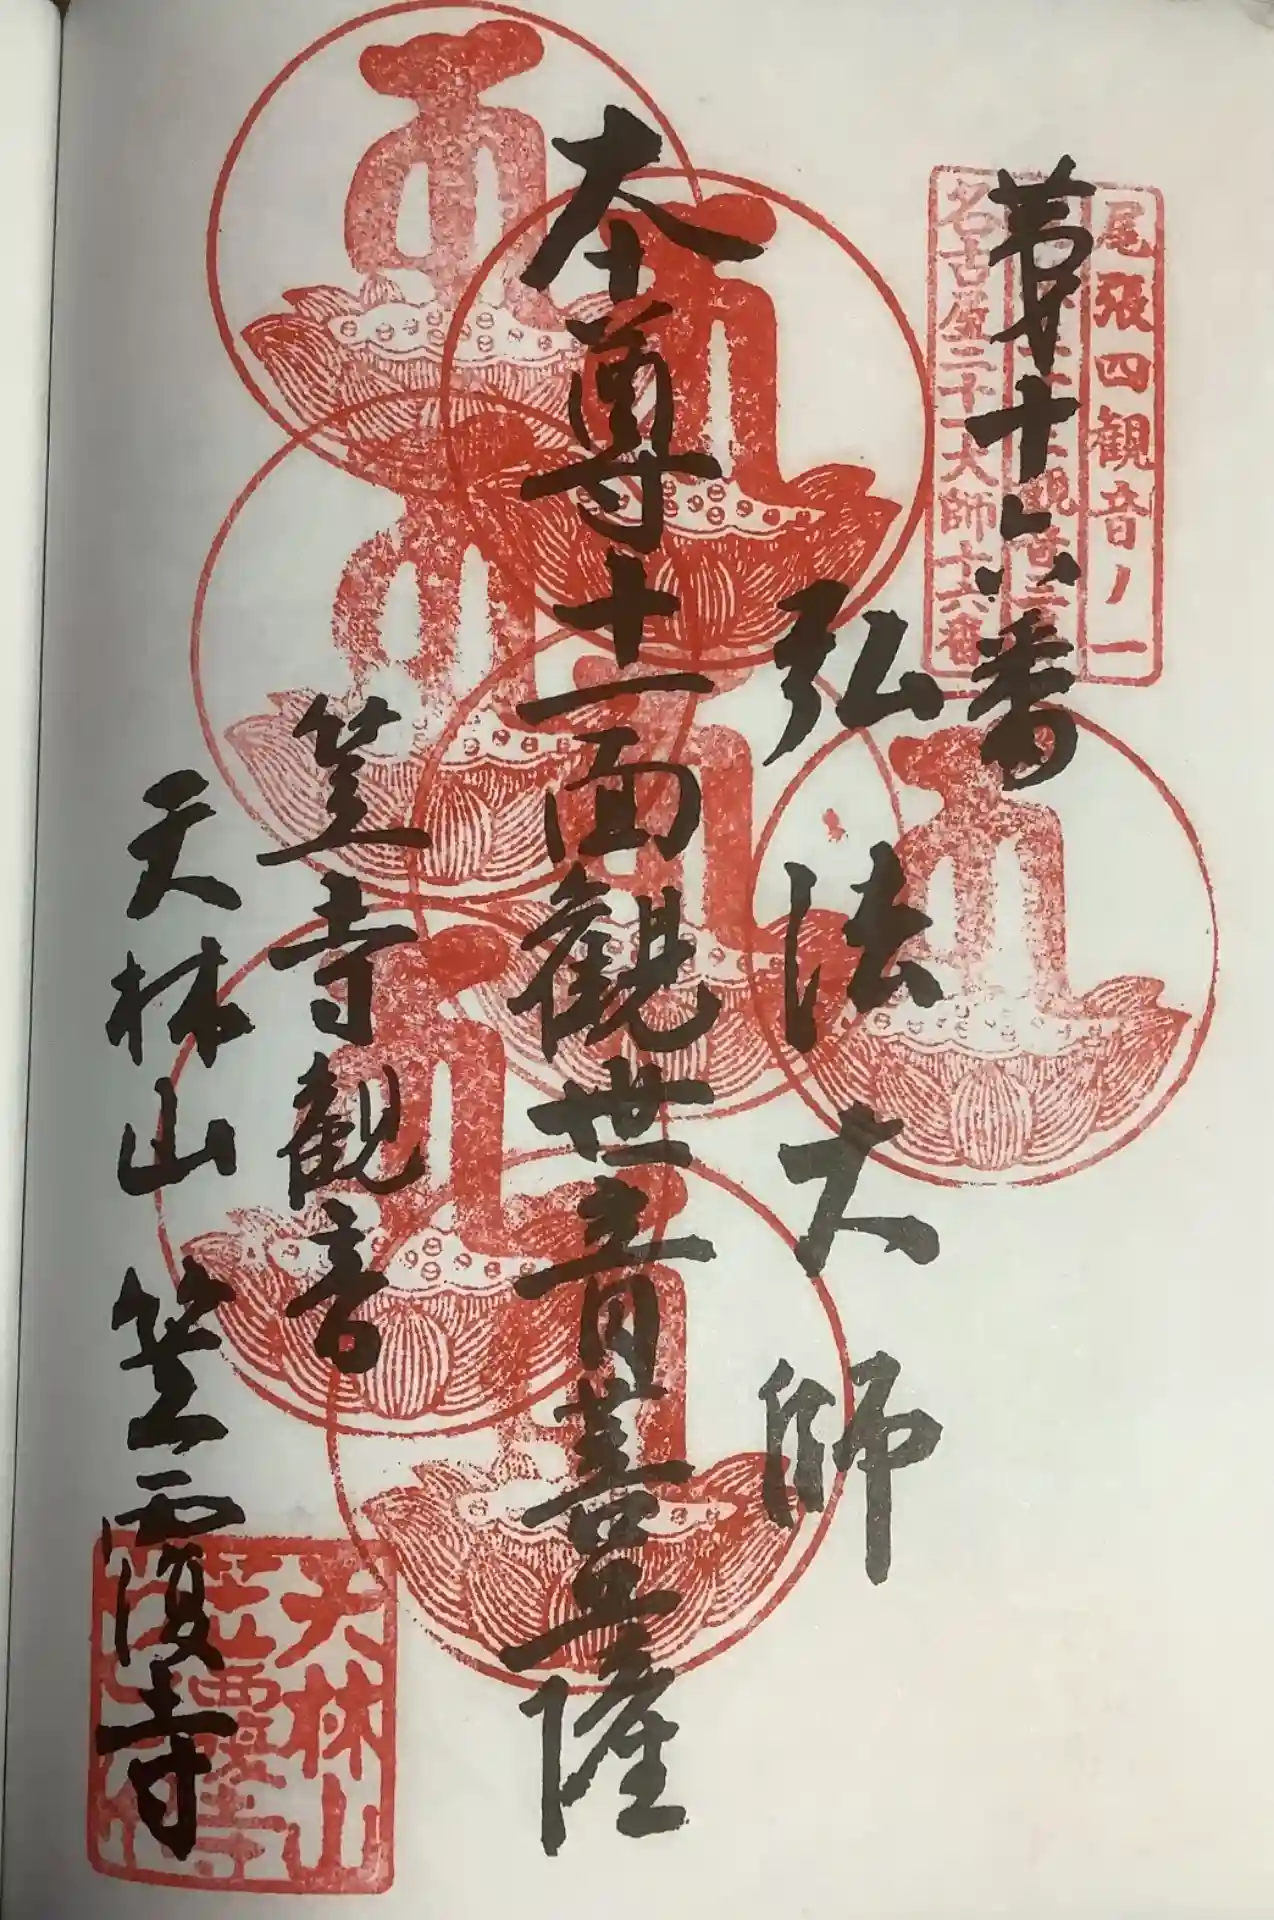 尾張四観音ノ一
名古屋二十一大師十六番
第十六番
弘法大師
本尊十一面観世音菩薩
笠寺観音
天林山 笠覆寺
天林山